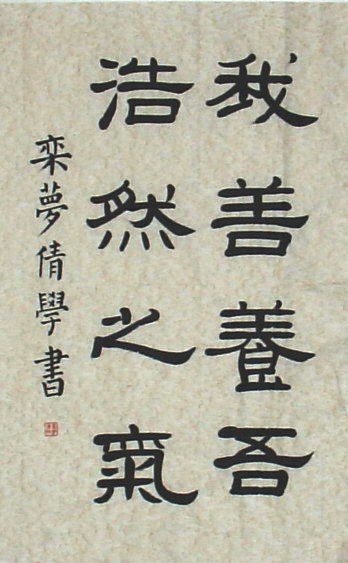 我善養吾
浩然之氣
栾夢倩學書